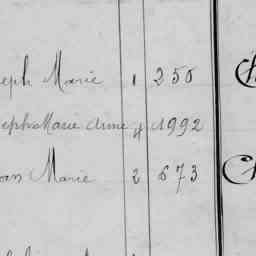 eph Marie 1 250
eph Marie Anne 4 1992
oan Marie 2 673